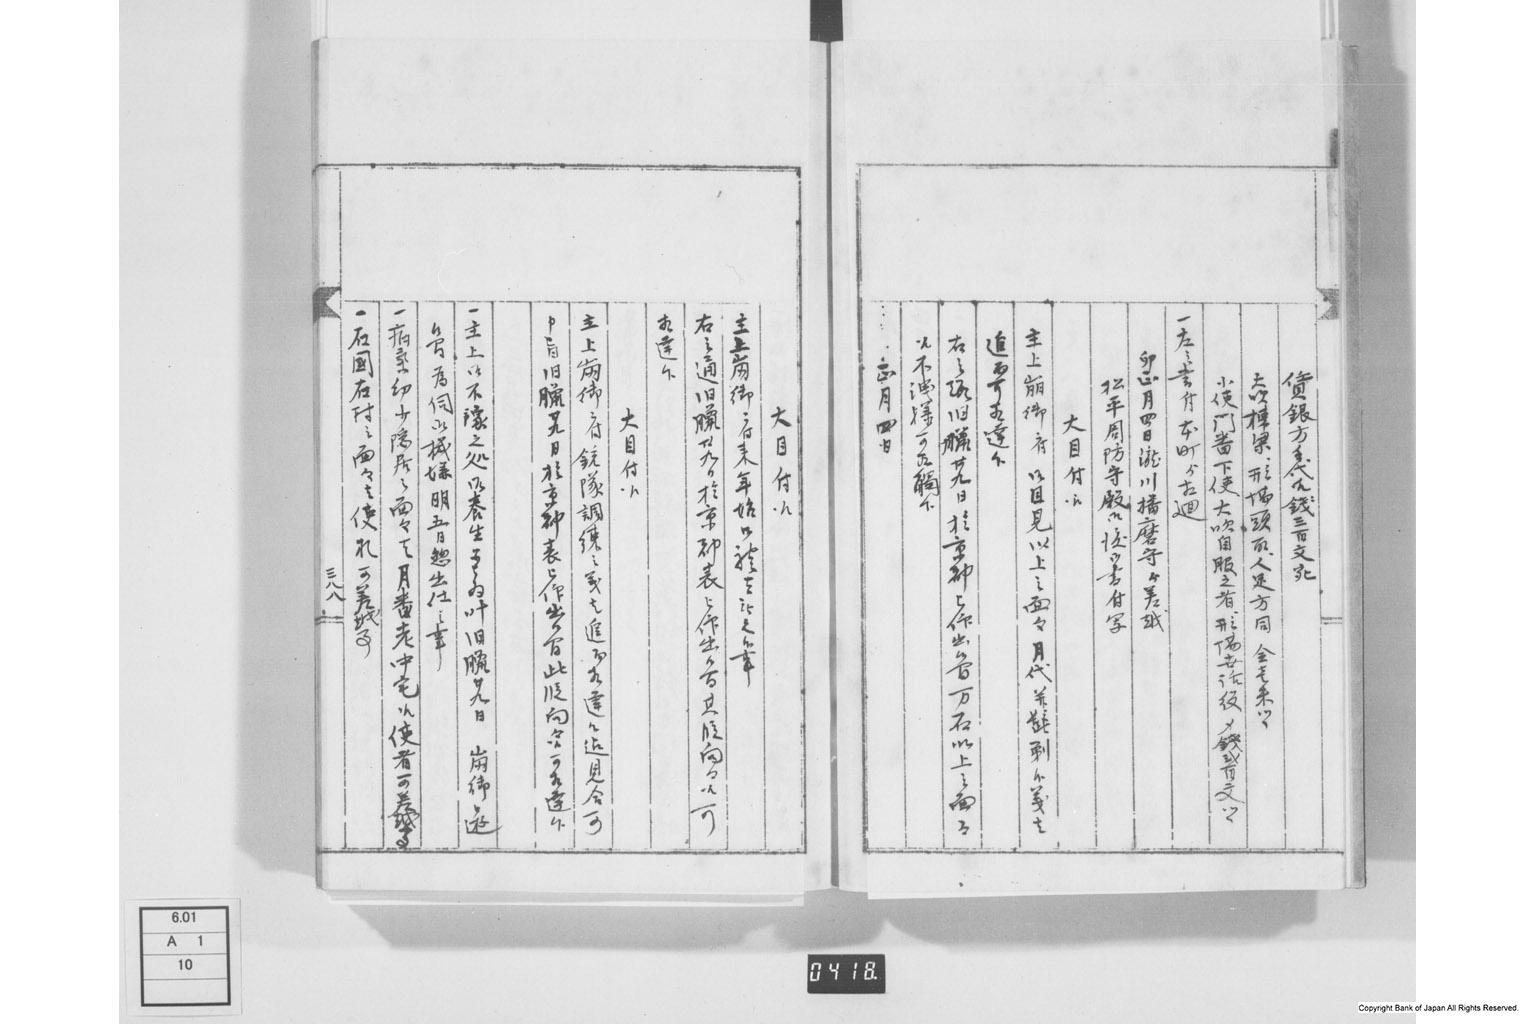 賃銀方手代 銭三百文宛
大吹棟梁 形場頭取 人足方同 金壱朱ツヽ
小使 門番 下使 大吹自服之者 形場世話役〆銭弐百文ツヽ
一左之書付本町ゟ相廻
卯正月四日瀧川播磨守ゟ差越
松平周防守殿御渡候書付写
大目付江
主上崩御ニ付 御目見以上之面々月代并髭剃候義者
追而可相達候
右之趣旧臘廿九日於京都被仰出候間万石以上之面々
江不洩様可被相触候
正月四日
大目付江
主上崩御ニ付来年始御礼者
右之通旧臘廿九日於京都表被仰出候間其段向々江可
相達候
大目付江
主上崩御ニ付銃隊調練之義者追而相達候迄見合可
申旨旧臘廿九日於京都表被仰出候間此段向々江可相達候
一主上御不豫之処御養生不被為叶旧臘廿九日 崩御被遊
候間為伺御機嫌明五日惣出仕之事
一病気幼少隠居之面々者月番老中宅江使者可差越事
一在國在村之面々者使札可差越事
三八八
6.01
A 1
10
0418.
Copyright Bank of Japan All Rights Reserved.